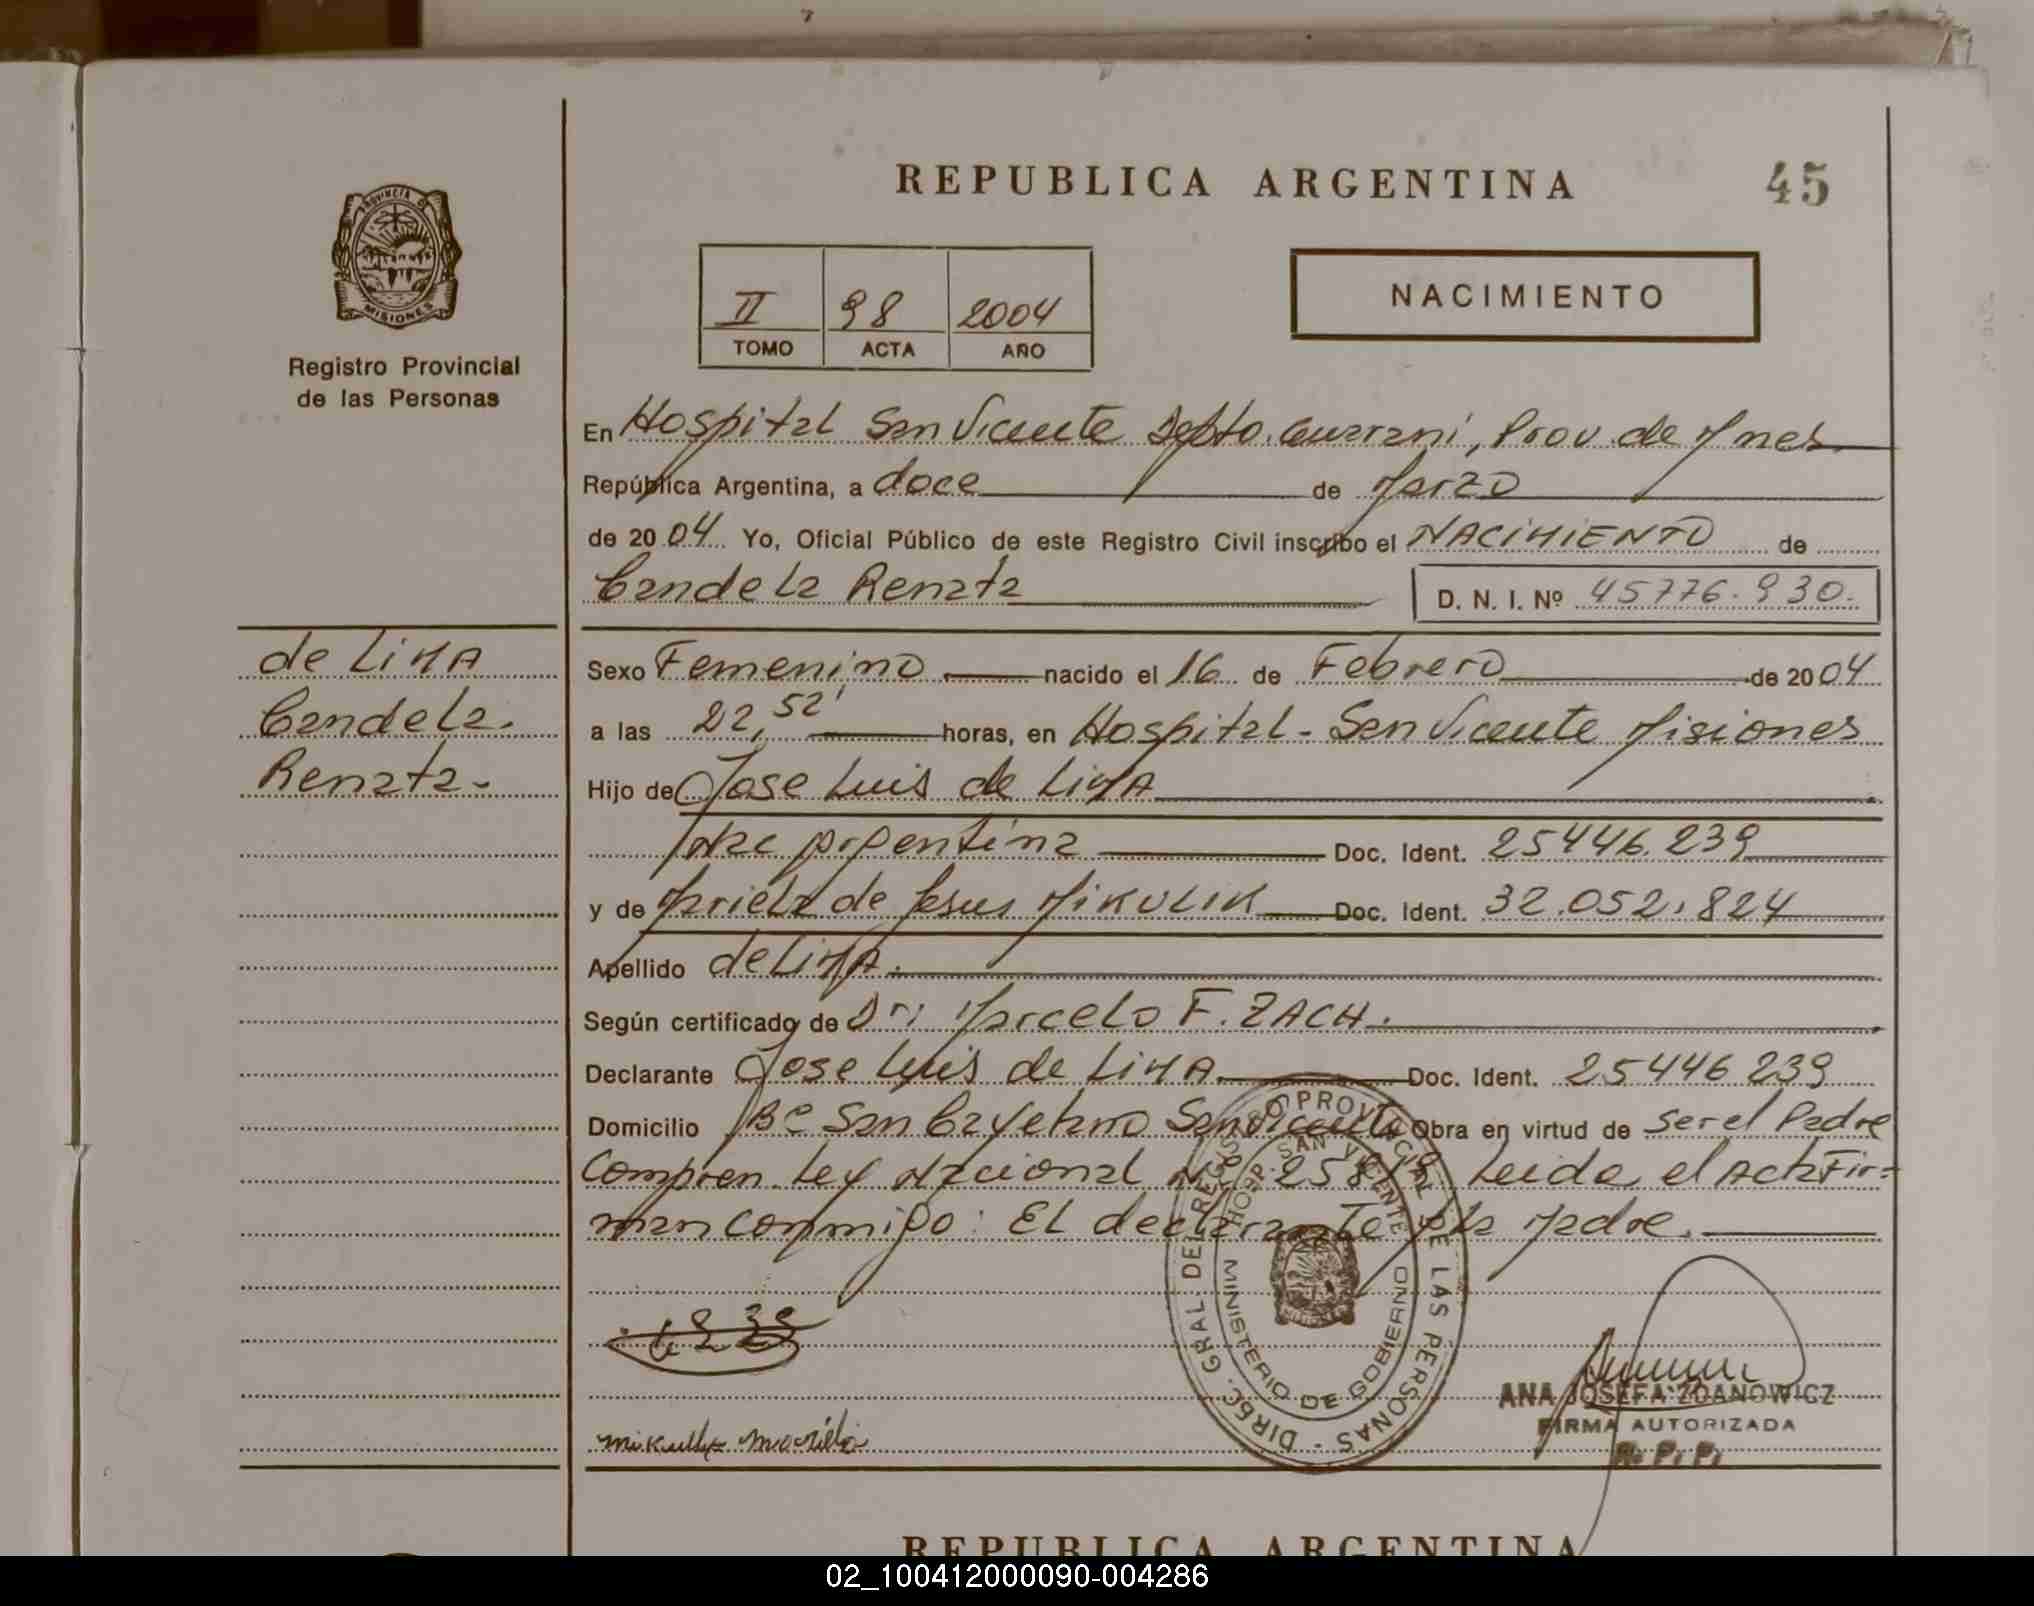 REPUBLICA ARGENTINA
45
PROVINCIA D
MISIONES
Registro Provincial
de las Personas
II 98 2004
TOMO ACTA AÑO
NACIMIENTO
En Hospital San Vicente Depto. Guarani, Prov. de Mnes
República Argentina, a doce de Marzo
de 2004 Yo, Oficial Público de este Registro Civil inscribo el NACIMIENTO de
Candela Renata D. N. I. Nº 45776.930.
de LiMA
Candela.
Renata-
Sexo Femenino nacido el 16 de Febrero de 2004
a las 22,52' horas, en Hospital - San Vicente Misiones
Hijo de Jose Luis de LiMA
Nac Argentina Doc. Ident. 25446.239
y de Mariela de Jesus MiKULIK Doc. Ident. 32.052.824
Apellido de LiMA.
Según certificado de Dr; Marcelo F. ZACH.
Declarante Jose Luis de LiMA Doc. Ident. 25446239
Domicilio Bº San Cayetano San Vicente Obra en virtud de ser el Padre
Compren. Ley Nacional Nº Leida el Acta Fir=
man conmigo: EL declarante y la Madre.
DIREC. GRAL. DEL REGISTRO PROVINCIAL DE LAS PERSONAS -
HOSP. SAN VICENTE
MINISTERIO DE GOBIERNO
ANA JOSEFA ZDANOWICZ
FIRMA AUTORIZADA
R. P. P.
REPUBLICA ARGENTINA
02_100412000090-004286